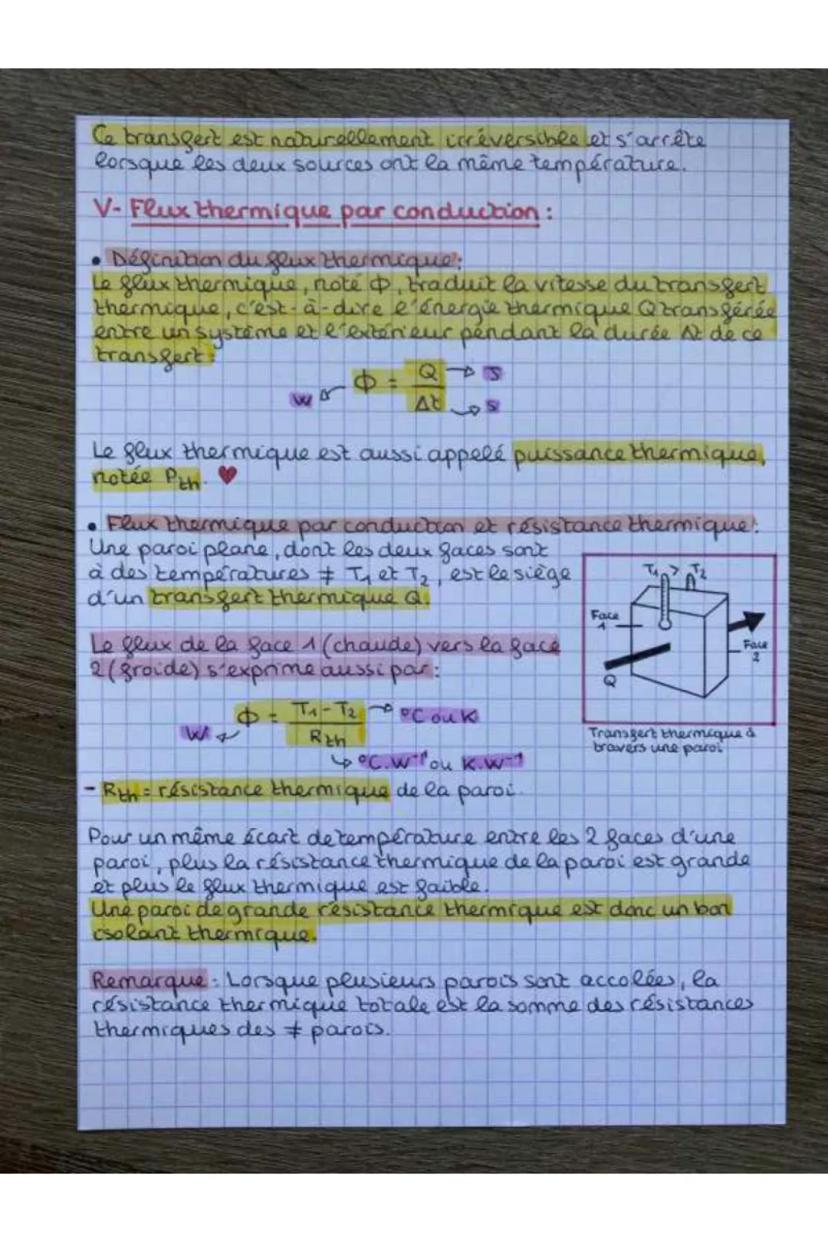 Ce transfert est naturellement irréversible et s'arrête
lorsque les deux sources ont la même température.
V- Flux thermique par conduction :
• Définition du flux thermique :
Le flux thermique, noté Φ, traduit la vitesse du transfert
thermique, c'est-à-dire l'énergie thermique Q transférée
entre un système et l'extérieur pendant la durée Δt de ce
transfert :
W ← Φ = Q/Δt → J → s
Le flux thermique est aussi appelé puissance thermique,
notée Pth. ♥
• Flux thermique par conduction et résistance thermique :
Une paroi plane, dont les deux faces sont
à des températures ≠ T1 et T2, est le siège
d'un transfert thermique Q.
T1 > T2
Face
1
Face
2
Q
Transfert thermique à
travers une paroi
Le flux de la face 1 (chaude) vers la face
2 (froide) s'exprime aussi par :
W ← Φ = (T1 - T2)/Rth → °C ou K
↳ °C.W⁻¹ ou K.W⁻¹
- Rth = résistance thermique de la paroi.
Pour un même écart de température entre les 2 faces d'une
paroi, plus la résistance thermique de la paroi est grande
et plus le flux thermique est faible.
Une paroi de grande résistance thermique est donc un bon
isolant thermique.
Remarque : Lorsque plusieurs parois sont accolées, la
résistance thermique totale est la somme des résistances
thermiques des ≠ parois.